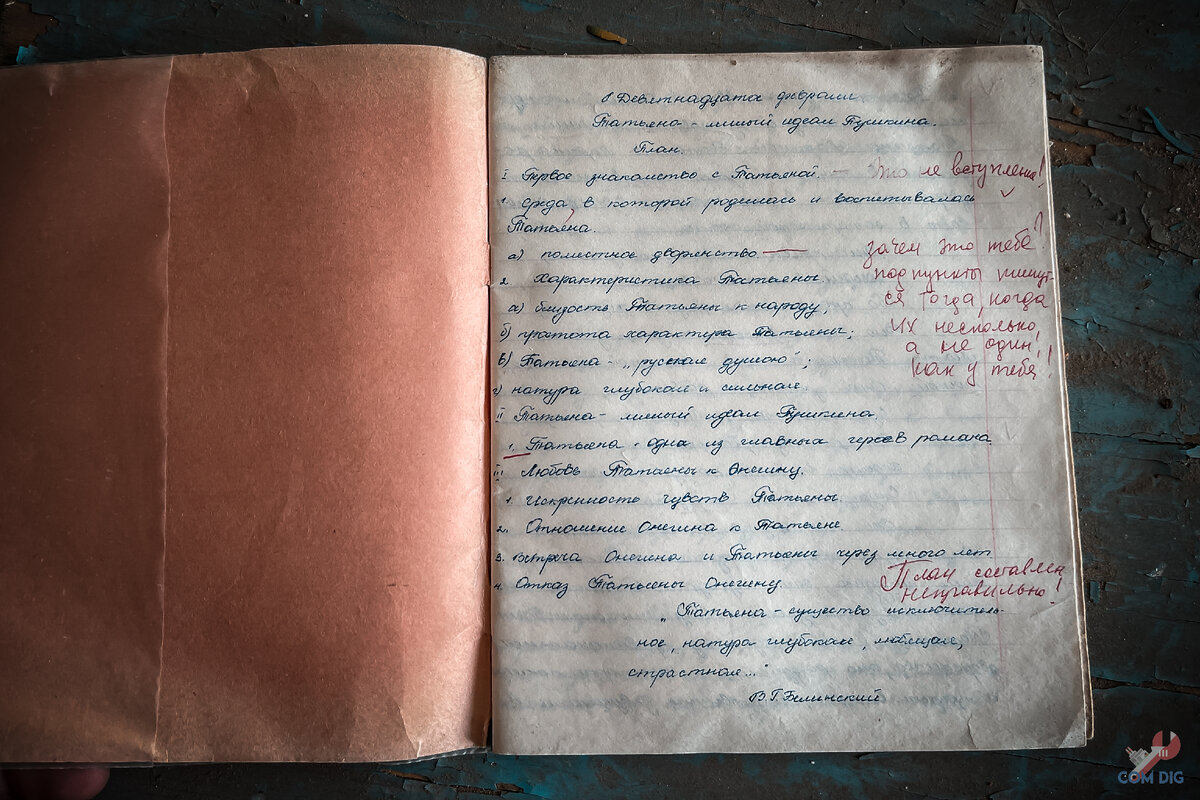 Девятнадцатое февраля.
Татьяна - милый идеал Пушкина.
План.
I Первое знакомство с Татьяной. — Это не вступление!
1. Среда, в которой родилась и воспитывалась
Татьяна.
а) поместное дворянство
зачем это тебе?
2. Характеристика Татьяны.
подпункты пишут-
а) близость Татьяны к народу;
ся тогда, когда
б) простота характера Татьяны;
их несколько,
а не один,
в) Татьяна - „русская душою";
как у тебя!
г) натура глубокая и сильная.
II Татьяна - милый идеал Пушкина.
1. Татьяна - одна из главных героев романа.
III Любовь Татьяны к Онегину.
1. Искренность чувств Татьяны.
2. Отношение Онегина к Татьяне.
3. Встреча Онегина и Татьяны через много лет
4. Отказ Татьяны Онегину.
План составлен
неправильно!
„Татьяна - существо исключитель-
ное, натура глубокая, любящая,
страстная..."
В.Г. Белинский
COM DIG